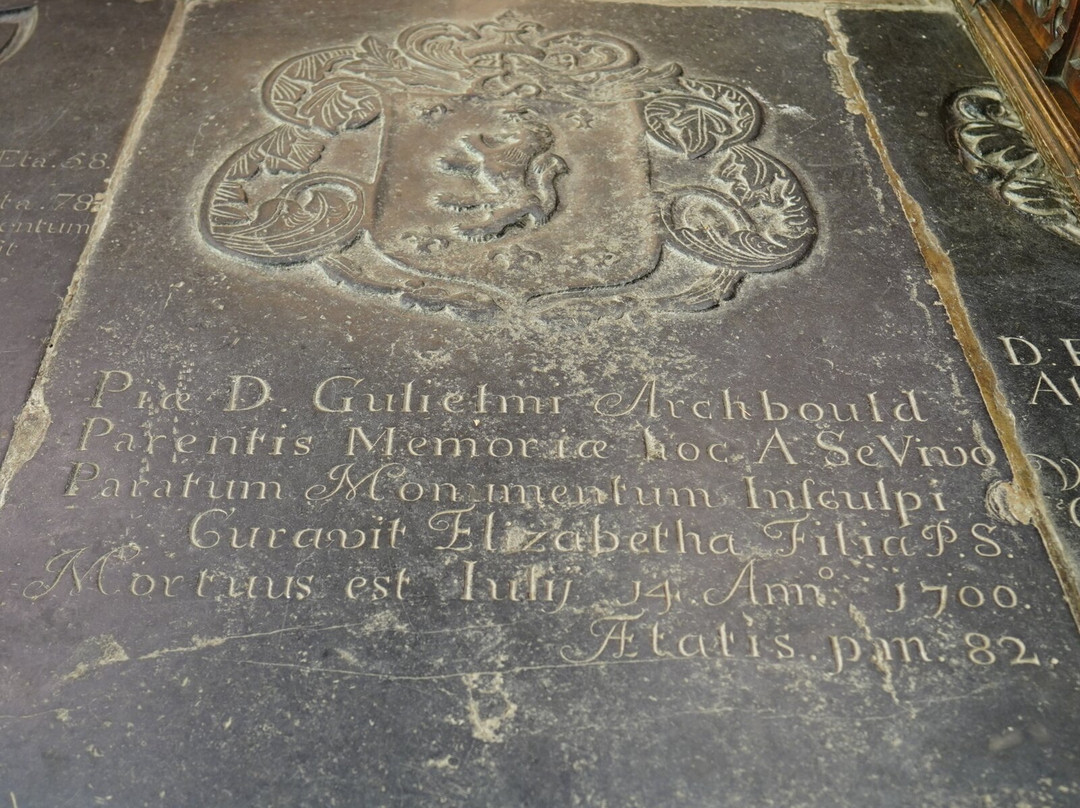 Eta. 58
ta. 78
entum
it
Piæ D. Gulielmi Archbould
Parentis Memoriæ hoc A Se Vivo
Paratum Monumentum Inſculpi
Curavit Elizabetha Filia P.S.
Mortuus est Iulij 14. Ann.o 1700.
Ætatis. pm. 82.
D.